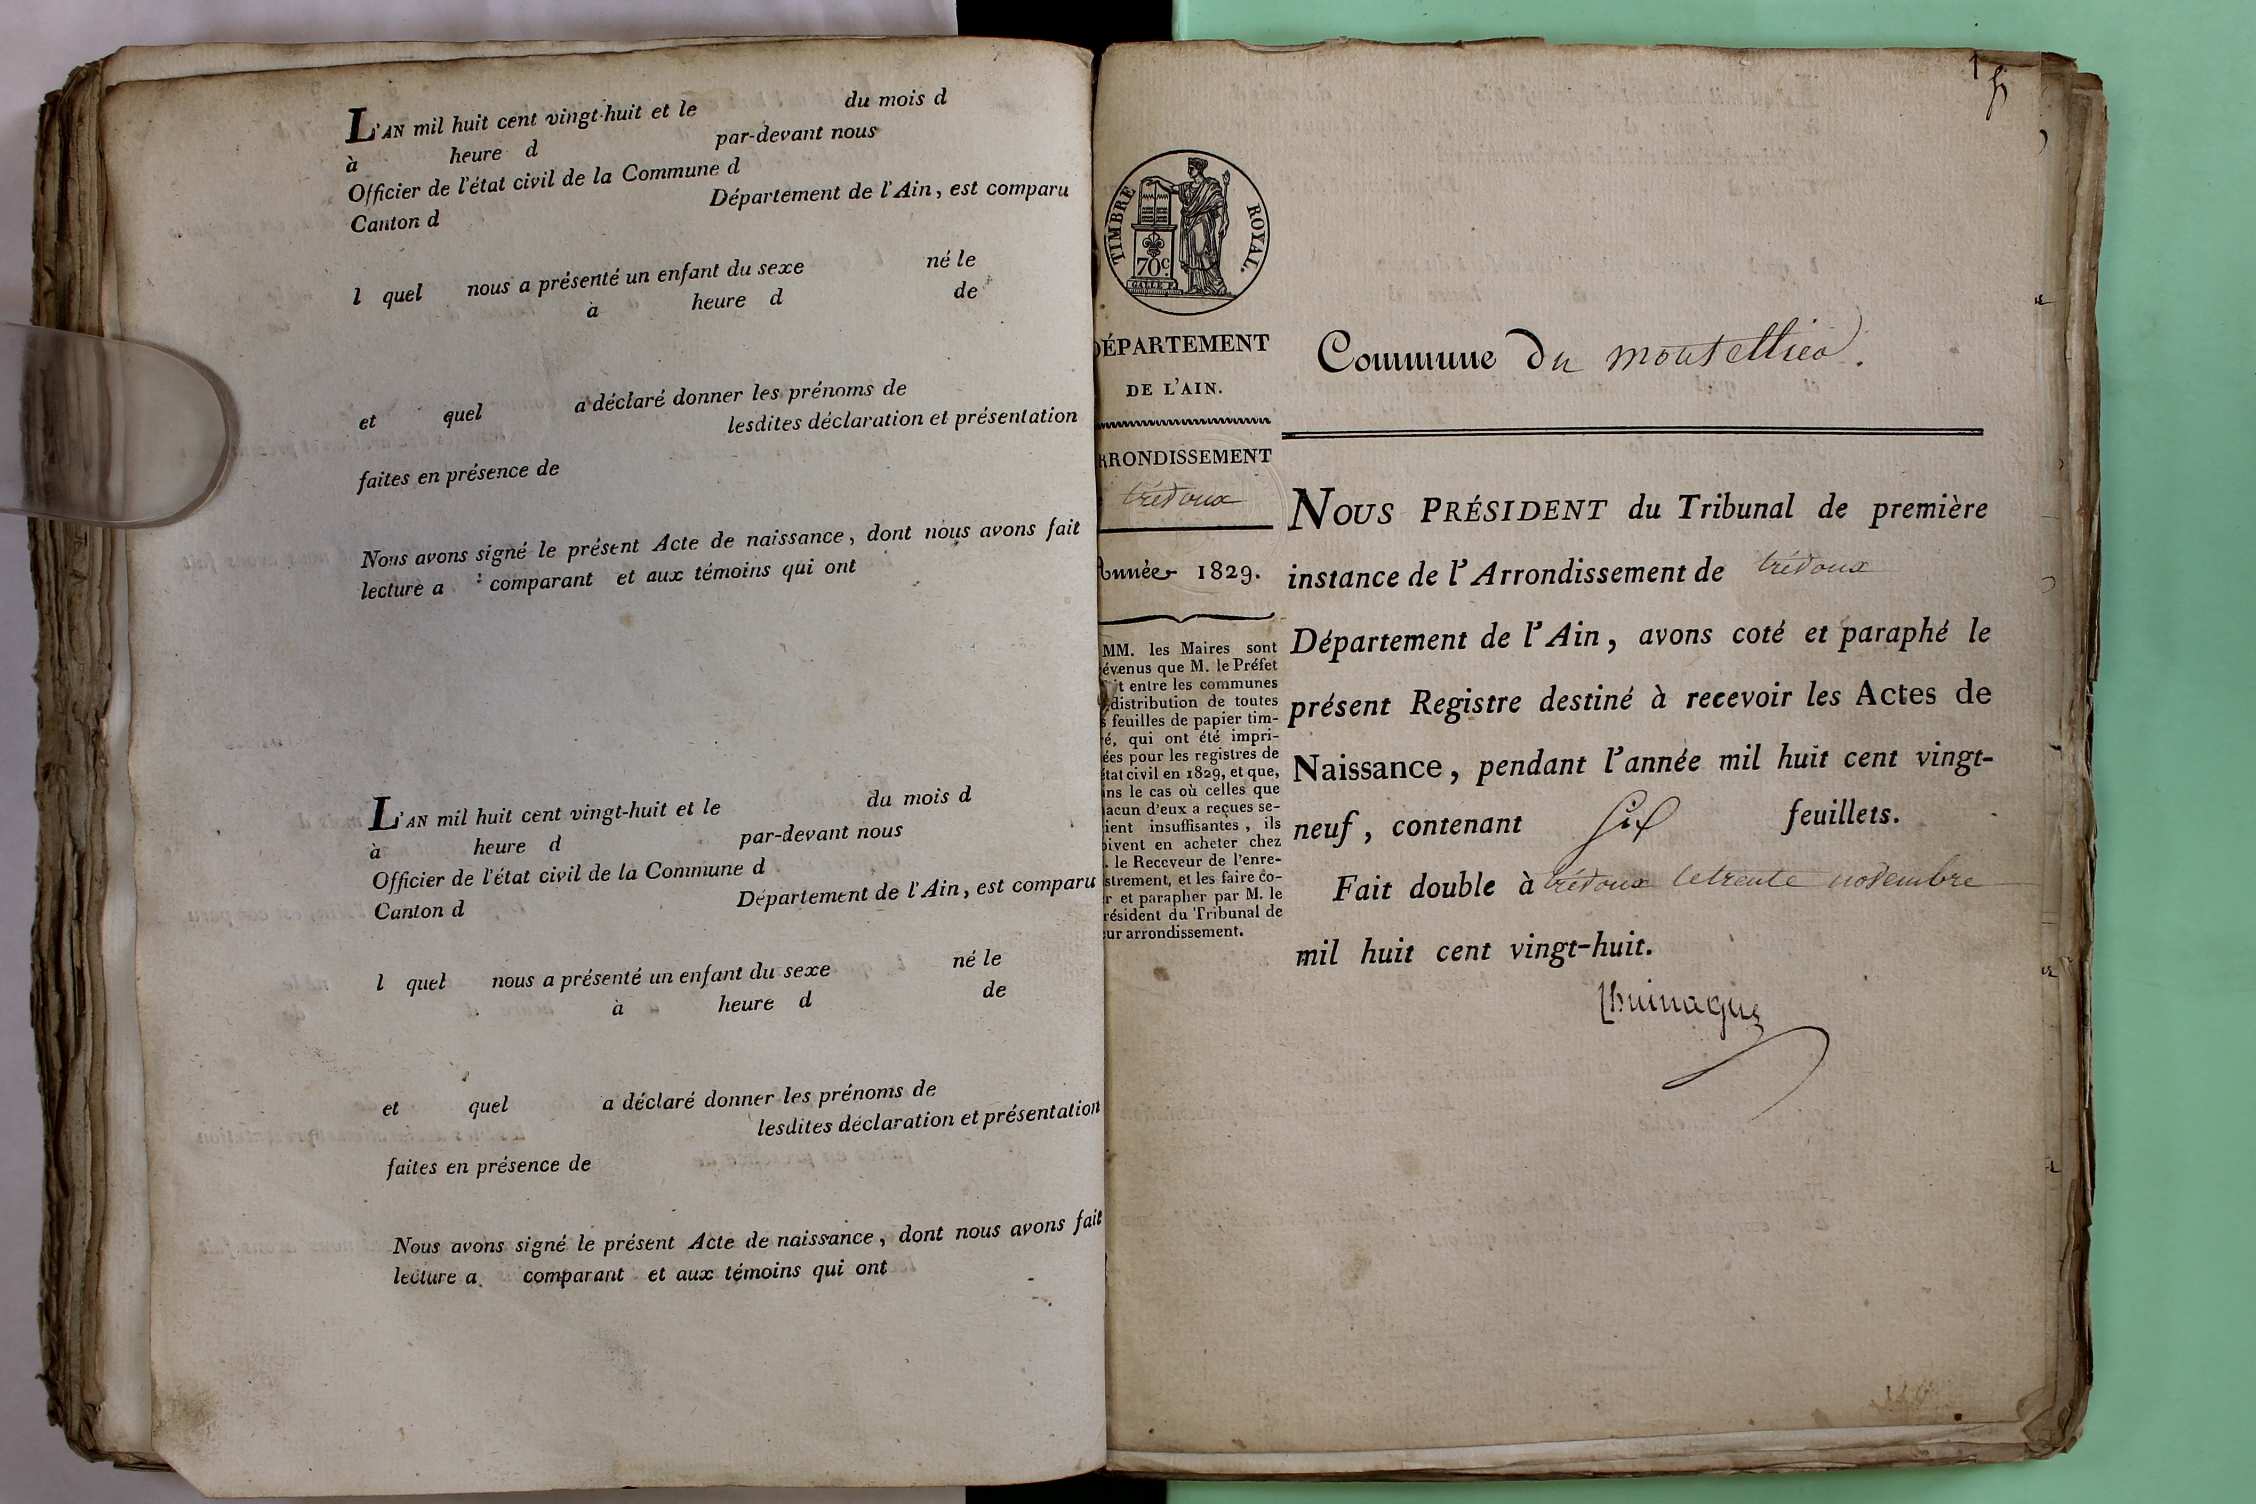 L'AN mil huit cent vingt-huit et le du mois d
à heure d par-devant nous
Officier de l'état civil de la Commune d
Canton d Département de l'Ain, est comparu
l quel nous a présenté un enfant du sexe né le
à heure d de
et quel a déclaré donner les prénoms de
lesdites déclaration et présentation
faites en présence de
Nous avons signé le présent Acte de naissance, dont nous avons fait
lecture a comparant et aux témoins qui ont
L'AN mil huit cent vingt-huit et le du mois d
à heure d par-devant nous
Officier de l'état civil de la Commune d
Canton d Département de l'Ain, est comparu
l quel nous a présenté un enfant du sexe né le
à heure d de
et quel a déclaré donner les prénoms de
lesdites déclaration et présentation
faites en présence de
Nous avons signé le présent Acte de naissance, dont nous avons fait
lecture a comparant et aux témoins qui ont
1
TIMBRE ROYAL.
70c.
DÉPARTEMENT
DE L'AIN.
RRONDISSEMENT
trévoux
Année 1829.
MM. les Maires sont
évenus que M. le Préfet
t entre les communes
distribution de toutes
s feuilles de papier tim-
é, qui ont été impri-
ées pour les registres de
état civil en 1829, et que,
ns le cas où celles que
acun d'eux a reçues se-
ient insuffisantes, ils
oivent en acheter chez
. le Receveur de l'enre-
strement, et les faire co-
r et parapher par M. le
résident du Tribunal de
ur arrondissement.
Commune du montellier.
NOUS PRÉSIDENT du Tribunal de première
instance de l'Arrondissement de trévoux
Département de l'Ain, avons coté et paraphé le
présent Registre destiné à recevoir les Actes de
Naissance, pendant l'année mil huit cent vingt-
neuf, contenant six feuillets.
Fait double à trévoux le trente novembre
mil huit cent vingt-huit.